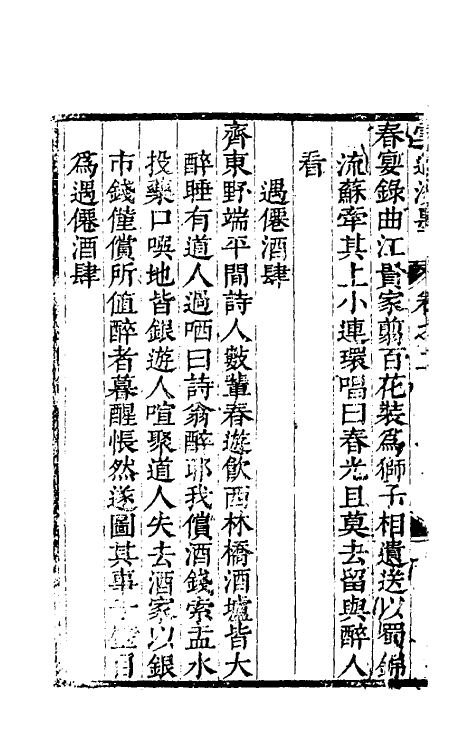 春宴錄曲江貴家剪百花裝為獅子相遺送以蜀錦
流蘇牽其上小連環唱曰春光且莫去留與醉人
看
遇僊酒肆
齊東野端平間詩人數輩春遊飲西林橋酒壚皆大
醉睡有道人過哂曰詩翁醉耶我償酒錢索盂水
投藥口噀地皆銀遊人喧聚道人失去酒家以銀
市錢僅償所值醉者暮醒悵然遂圖其事于壁目
為遇僊酒肆